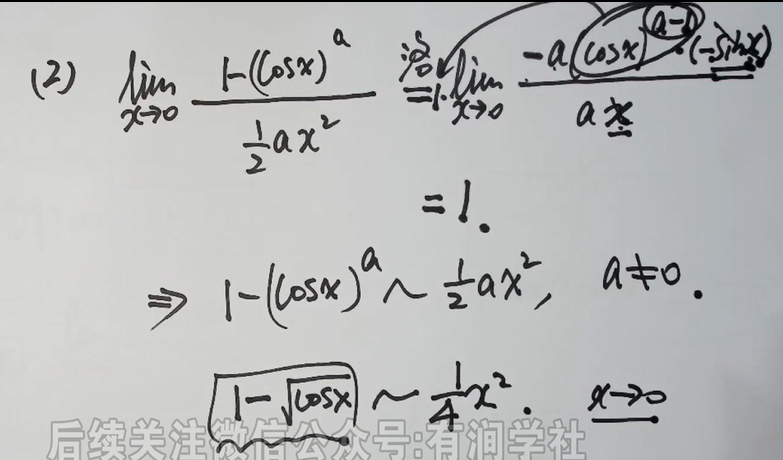 (2) lim x→0 1-(cosx)^a / ½ax² 洛 0/0 = 1· lim x→0 -a(cosx)^(a-1)·(-sinx) / ax
= 1.
⇒ 1-(cosx)^a ~ ½ax², a≠0.
1-√cosx ~ ¼x². x→0
后续关注微信公众号:有润学社